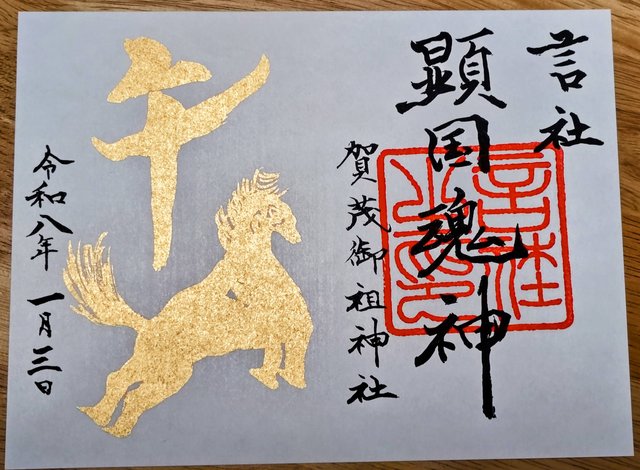 言社
顕国魂神
賀茂御祖神社
午
令和八年 一月三日